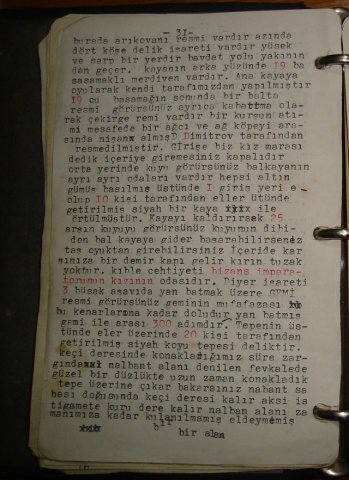 - 31-
burada arıkovanı resmi vardır ağzında
dört köşe delik isareti vardır yüsek
ve sarp bir yerdir havdat yolu yakının
dan geçer. kayanın arka yüzünde 19 ba
sasamaklı merdiven vardır. Ana kayaya
oyularak kendi tarafımızdan yapılmıştır
19 cu basamağın sonunda bir balta
resmi görürsünüz ayrıca kabattma ola-
rak çekirge remi vardır bir kurşun atı-
mi mesafede bir ağcı ve ağ köpeyi ara-
sında nişan almış D Dimitrov tarafından
resmedilmiştir. Girişe biz kız marası
dedik içeriye giremesiniz kapalıdır
orta yerinde kuyu görürsünüz balkayanın
ayrı ayrı odaları vardır hepsi altın
gümüs basılmış üstünde I giriş yeri
olup 10 kisi tarafından eller ütünde
getirilmiş siyah bir kaya ile
örtülmüştür. Kayayı kaldırırsak 25
arsın kuyuyu görürsünüz kuyunun dibi-
den bal kayaya gider basarabilirseniz
tas oyuktan girebilirsiniz İçeride kar
sınıza bir demir kapı gelir kırın tuzak
yoktur. kıble cehtiyeti bizans impara-
torunun kızının odasıdır. Diyer isareti
3 büsak asavida yan batmık üzere GEMİ
resmi görürsünüz geminin mufafazası
bu kenarlarına kadar doludur yan batmıs
gemi ile arası 300 adımdır. Tepenin üs-
tünde eler üzerinde 20 kisi tarafından
getirilmiş siyah koyu tepesi deliktir.
keçi deresinde konakladığımız süre zar-
gında nalbant alanı denilen fevkalede
güzel bir düzlükte uzun zaman konakladık
tepe üzerine çıkar bakarsınız nabant sa
hası doğusunda keçi deresi kalır aksi is
tigamete kuru dere kalır nalban alanı za
manımıza kadar kulanılmamış eldeymemis
bir alan